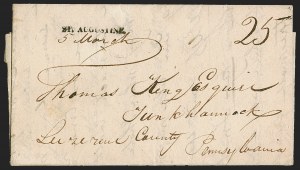 ST. AUGUSTINE,
3 March
25
Thomas King Esquire
Tunkhannock
Luzerne County Pennsylvania